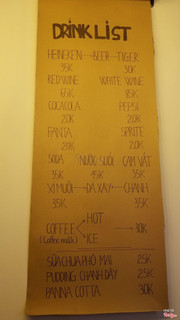 DRINK LIST
HEINEKEN BEER TIGER
35K 30K
RED WINE WHITE WINE
65K 85K
COLACOLA PEPSI
20K 20K
FANTA SPRITE
20K 20K
SODA NƯỚC SUỐI CAM VẮT
35K 15K 35K
XÍ MUỘI ĐÁ XAY CHANH
35K 35K
HOT
COFFEE 30K
(Coffee milk) ICE
SỮA CHUA PHÔ MAI 25K
PUDDING CHANH DÂY 25K
PANNA COTTA 30K